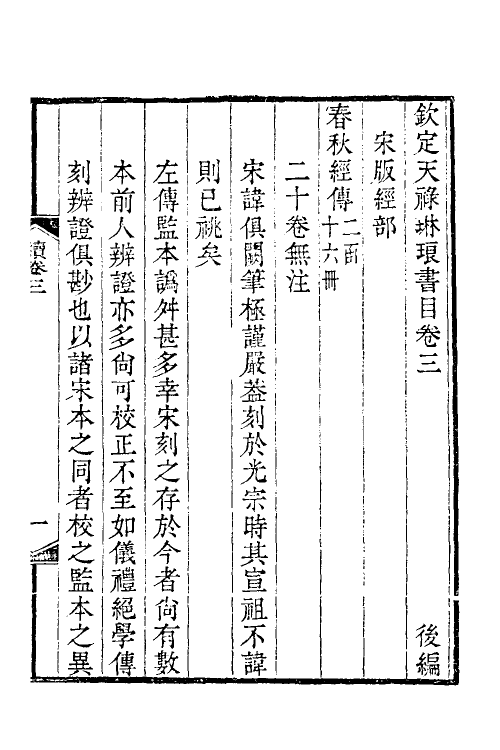 欽定天祿琳琅書目卷三　後編
宋版經部
春秋經傳二函十六冊
二十卷無注
宋諱俱闕筆極謹嚴葢刻於光宗時其宣祖不諱
則已祧矣
左傳監本譌舛甚多幸宋刻之存於今者尚有數
本前人辨證亦多尚可校正不至如儀禮絕學傳
刻辨證俱尠也以諸宋本之同者校之監本之異
續卷三
一